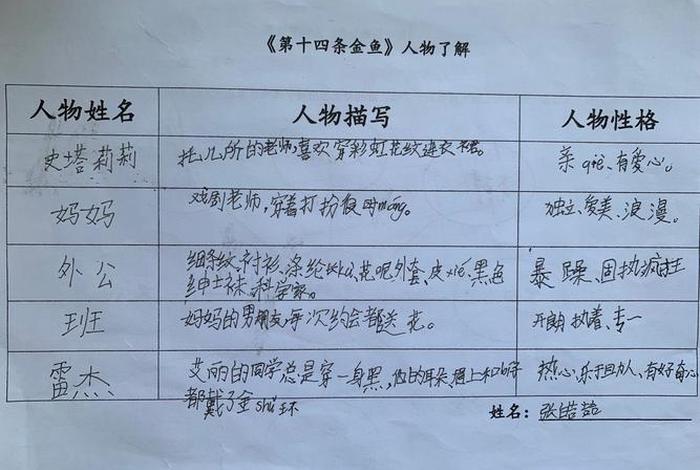 《第十四条金鱼》人物了解
人物姓名 人物描写 人物性格
史塔莉莉 托儿所的老师,喜欢穿彩虹花纹连衣裙。 亲qiè、有爱心。
妈妈 戏剧老师,穿着打扮很时máng。 独立、爱美、浪漫。
外公 细条纹衬衫、涤纶kù、花呢外套、皮xié、黑色 暴躁、固执疯狂
绅士袜,科学家。
班 妈妈的男朋友,每次约会都送花。 开朗、执着、专一
雷杰 艾丽的同学总是穿一身黑,他的耳朵、唇上和bí子 热心、乐于助人、有好奇心
都戴了金shǔ环
姓名:张皓喆